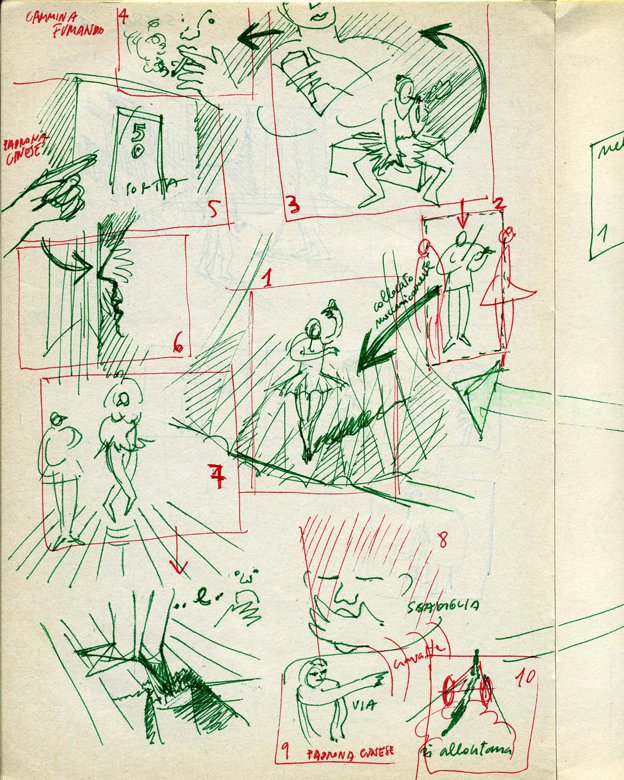 CAMMINA
FUMANDO
4
PADRONA
CINESE
50
PORTA
5
3
2
1
collocato
6
7
8
SBADIGLIA
VIA
9
PADRONA CINESE
10
si allontana
1